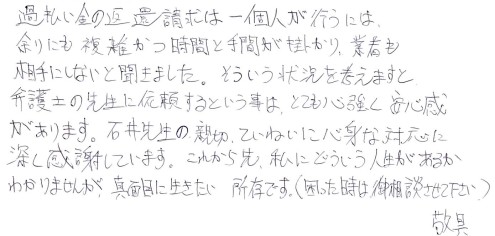 過払い金の返還請求は一個人が行うには、
余りにも複雑かつ時間と手間が掛かり、業者も
相手にしないと聞きました。そういう状況を考えますと
弁護士の先生に依頼するという事は、とても心強く安心感
があります。石井先生の親切、ていねいに心身な対応に
深く感謝しています。これから先、私にどういう人生があるか
わかりませんが、真面目に生きたい所存です。(困った時は御相談させて下さい)
敬具